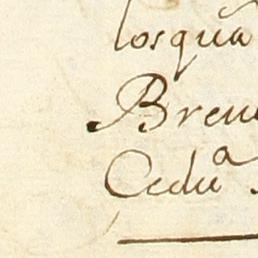 losquã
Breu
Ceduª